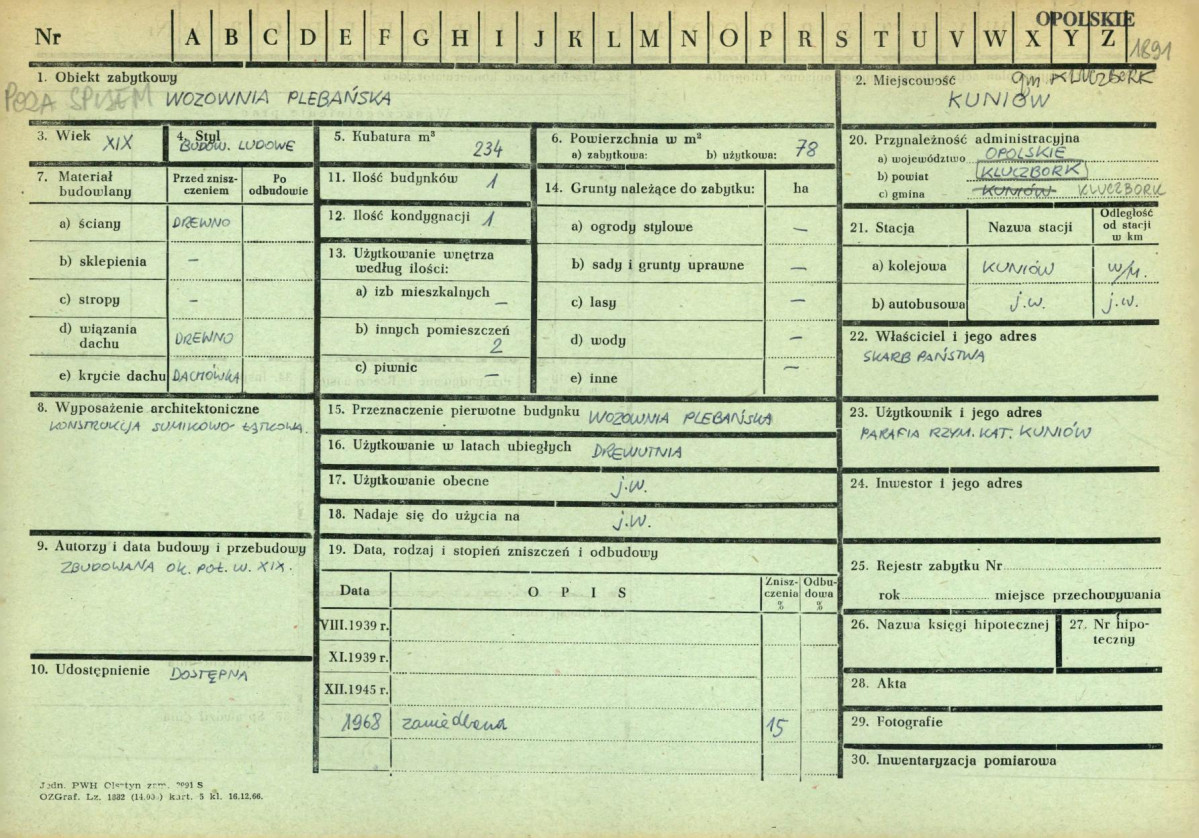 OPOLSKIE
Nr A B C D E F G H I J K L M N O P R S T U V W X Y Z 1891
1. Obiekt zabytkowy
POZA SPISEM WOZOWNIA PLEBAŃSKA
2. Miejscowość gm KLUCZBORK
KUNIÓW
3. Wiek XIX
4. Styl
BUDOW. LUDOWE
5. Kubatura m³
234
6. Powierzchnia w m²
a) zabytkowa: b) użytkowa: 78
7. Materiał budowlany
Przed znisz-
czeniem
Po
odbudowie
a) ściany DREWNO
b) sklepienia –
c) stropy –
d) wiązania
dachu DREWNO
e) krycie dachu DACHÓWKA
8. Wyposażenie architektoniczne
KONSTRUKCJA SUMIKOWO-ŁĄTKOWA.
9. Autorzy i data budowy i przebudowy
ZBUDOWANA OK. POŁ. W. XIX.
10. Udostępnienie DOSTĘPNA
11. Ilość budynków 1
12. Ilość kondygnacji 1
13. Użytkowanie wnętrza
według ilości:
a) izb mieszkalnych –
b) innych pomieszczeń
2
c) piwnic –
14. Grunty należące do zabytku: ha
a) ogrody stylowe –
b) sady i grunty uprawne –
c) lasy –
d) wody –
e) inne –
15. Przeznaczenie pierwotne budynku WOZOWNIA PLEBAŃSKA
16. Użytkowanie w latach ubiegłych DREWUTNIA
17. Użytkowanie obecne j.w.
18. Nadaje się do użycia na j.w.
19. Data, rodzaj i stopień zniszczeń i odbudowy
Data OPIS Znisz-
czenia
%
Odbu-
dowa
%
VIII.1939 r.
XI.1939 r.
XII.1945 r.
1968 zaniedbana 15
20. Przynależność administracyjna
a) województwo OPOLSKIE
b) powiat KLUCZBORK
c) gmina KUNIÓW KLUCZBORK
21. Stacja Nazwa stacji Odległość
od stacji
w km
a) kolejowa KUNIÓW w/m.
b) autobusowa j.w. j.w.
22. Właściciel i jego adres
SKARB PAŃSTWA
23. Użytkownik i jego adres
PARAFIA RZYM. KAT. KUNIÓW
24. Inwestor i jego adres
25. Rejestr zabytku Nr
rok miejsce przechowywania
26. Nazwa księgi hipotecznej
27. Nr hipo-
teczny
28. Akta
29. Fotografie
30. Inwentaryzacja pomiarowa
Jedn. PWH Olsztyn zam. S
OZGraf. Lz. 1882 kart. 5 kl. 16.12.66.